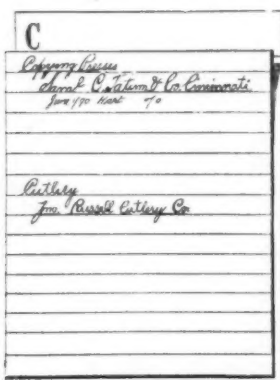 C
Copying Presses
Saml C. Tatum & Co. Cincinnati
Cutlery
Jno. Russell Cutlery Co